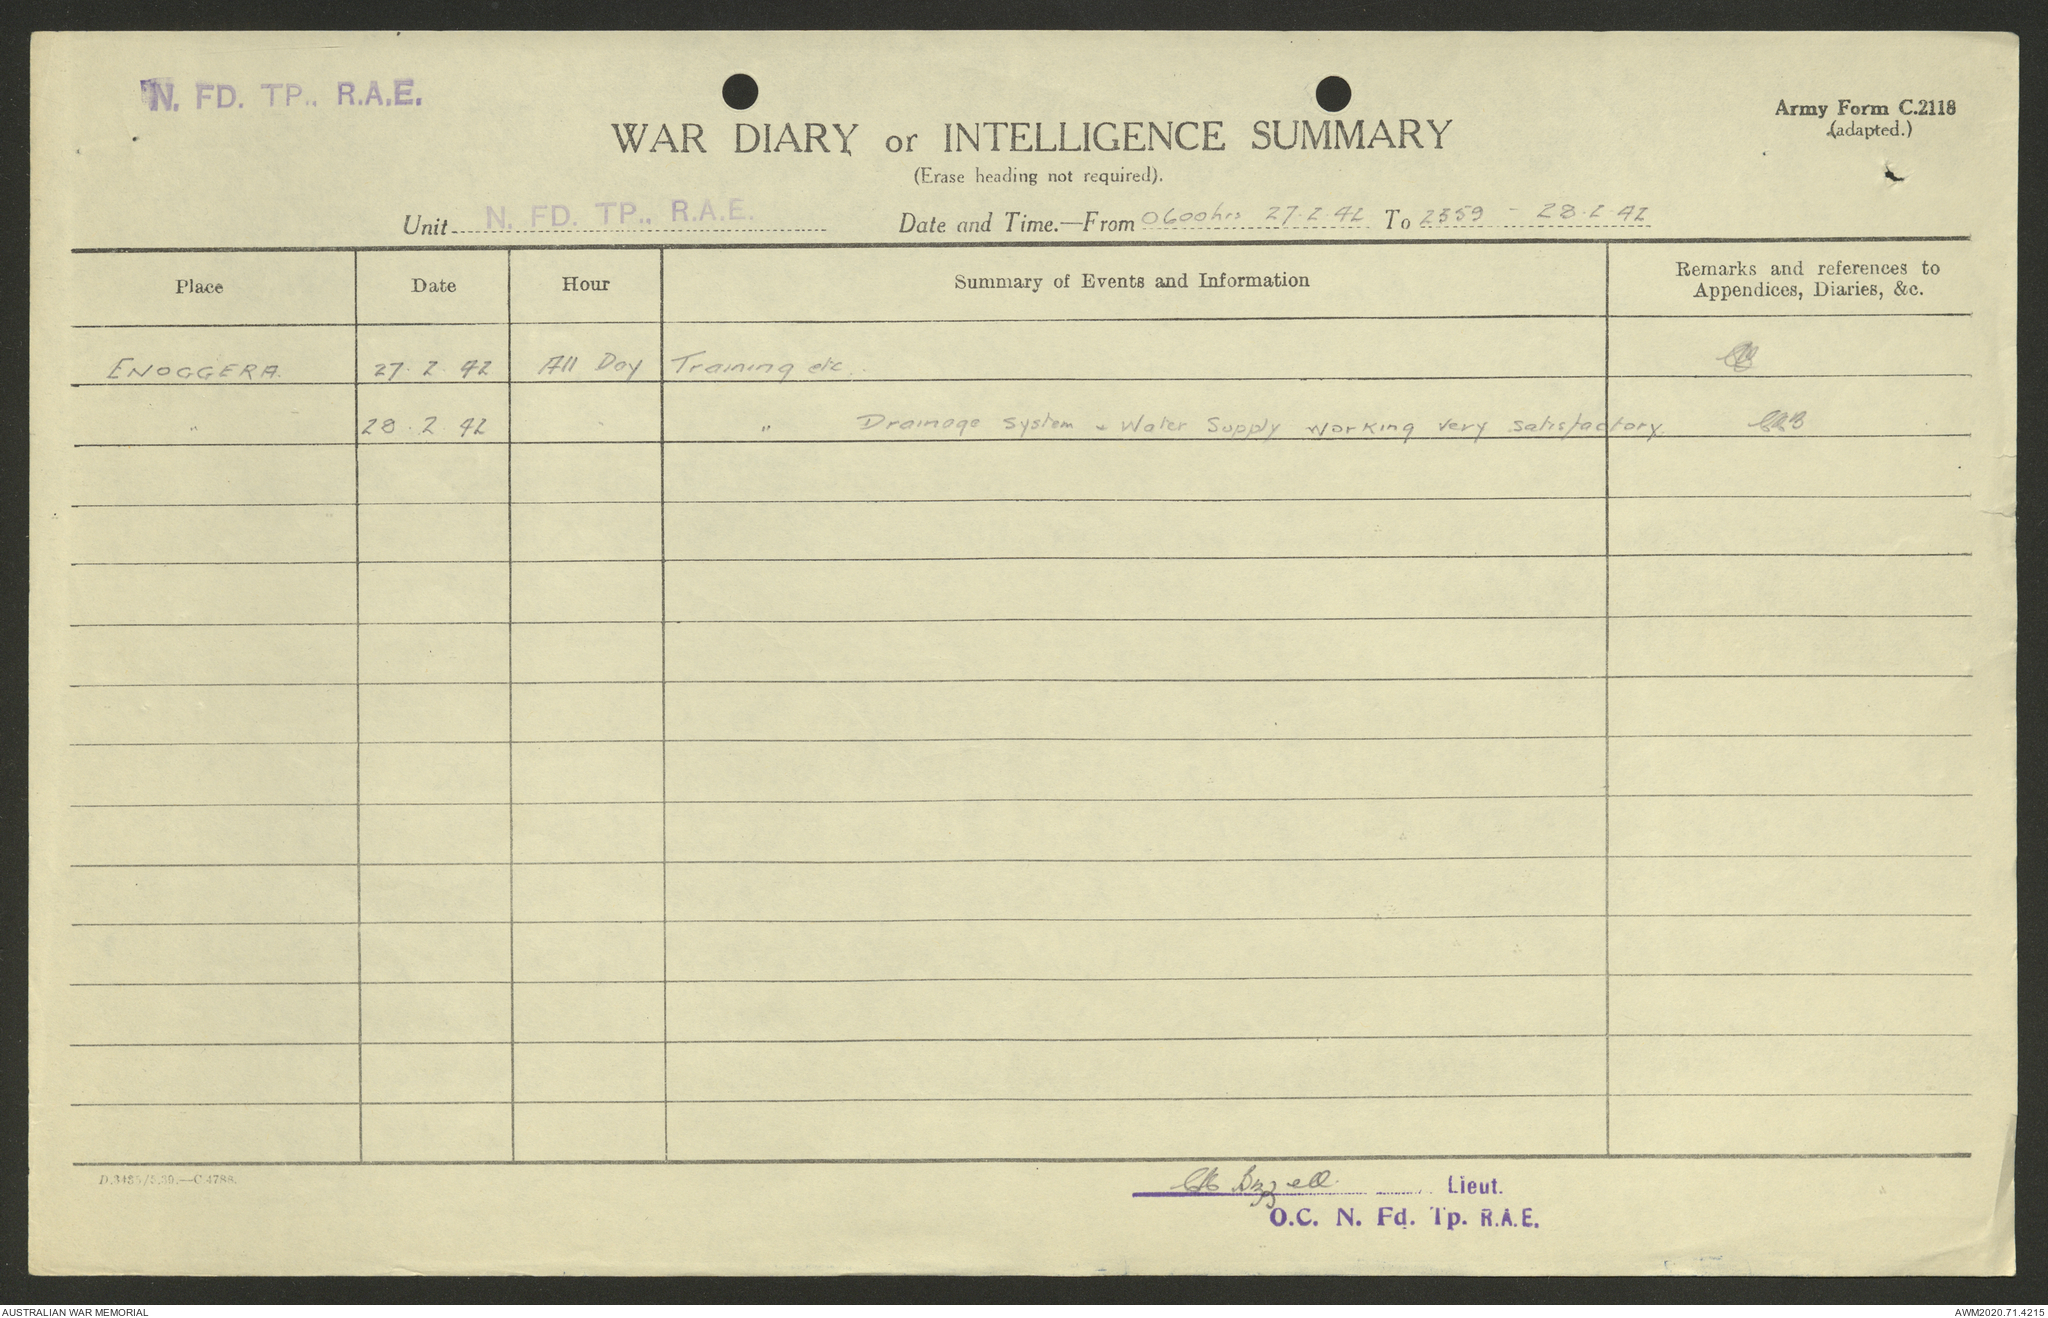 N. FD. TP., R.A.E.
Army Form C.2118
(adapted.)
WAR DIARY or INTELLIGENCE SUMMARY
(Erase heading not required).
Unit N. FD. TP., R.A.E. Date and Time.—From 0600hrs 27.2.42 To 2359 - 28.2.42
Place Date Hour Summary of Events and Information Remarks and references to
Appendices, Diaries, &c.
ENOGGERA. 27.2.42 All Day Training etc.
" 28.2.42 " " Drainage System & Water Supply working very satisfactory.
D.3485/5.39.—C.4788.
Lieut.
O.C. N. Fd. Tp. R.A.E.
AUSTRALIAN WAR MEMORIAL
AWM2020.71.4215